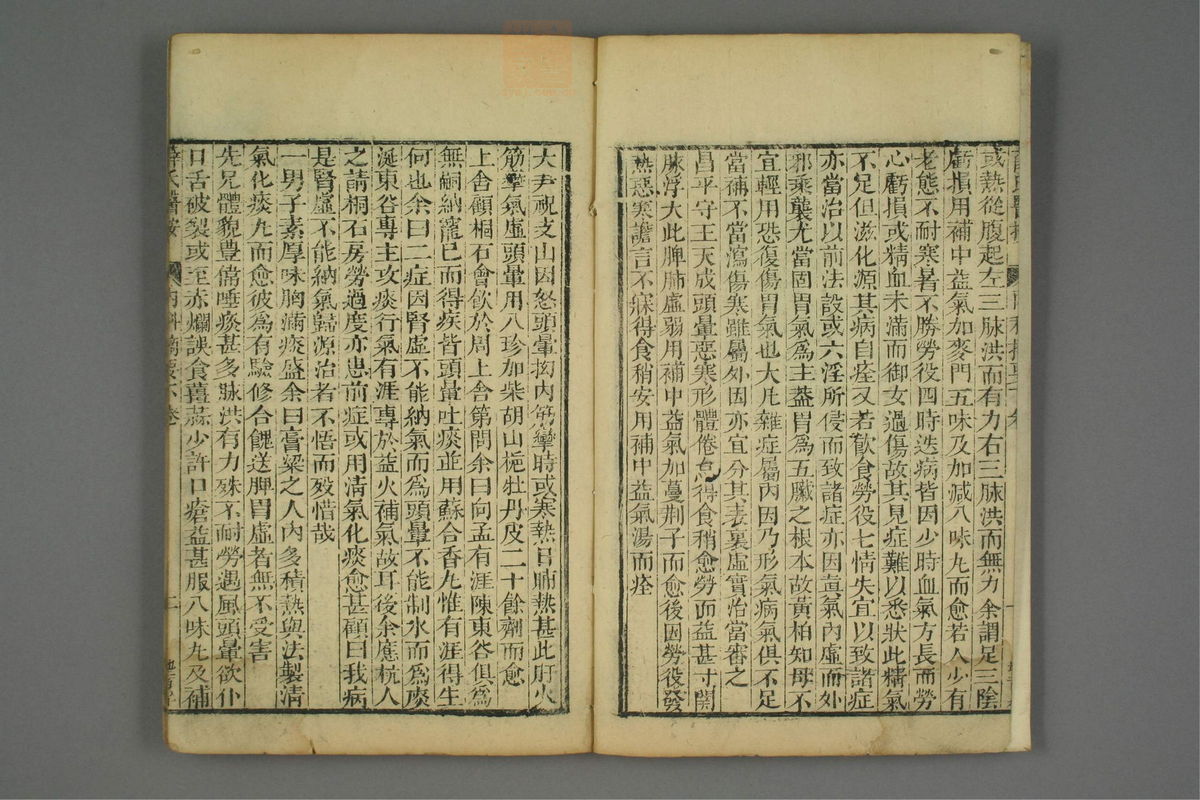 或熱從腹起左三脉洪而有力右三脉洪而無力余謂足三陰
虧損用補中益氣加麥門五味及加減八味丸而愈若人少有
老態不耐寒暑不勝勞役四時迭病皆因少時血氣方長而勞
心虧損或精血未滿而御女過傷故其見症難以悉狀此精氣
不足但滋化源其病自痊又若飲食勞役七情失宜以致諸症
亦當治以前法設或六淫所侵而致諸症亦因眞氣內虛而外
邪乘襲尤當固胃氣爲主葢胃爲五臟之根本故黃柏知母不
宜輕用恐復傷胃氣也大凡雜症屬內因乃形氣病氣俱不足
當補不當瀉傷寒雖屬外因亦宜分其表裏虛實治當審之
昌平守王天成頭暈惡寒形體倦怠得食稍愈勞而益甚寸關
脉浮大此脾肺虛弱用補中益氣加蔓荆子而愈後因勞役發
熱惡寒譫言不寐得食稍安用補中益氣湯而痊
大尹祝支山因怒頭暈拗內筋攣時或寒熱日晡熱甚此肝火
筋攣氣虛頭暈用八珍加柴胡山梔牡丹皮二十餘劑而愈
上舍顧桐石會飲於周上舍第問余曰向孟有涯陳東谷俱爲
無嗣納寵已而得疾皆頭暈吐痰並用蘇合香丸惟有涯得生
何也余曰二症因腎虛不能納氣而爲頭暈不能制水而爲痰
涎東谷專主攻痰行氣有涯專於益火補氣故耳後余應杭人
之請桐石房勞過度亦患前症或用清氣化痰愈甚顧曰我病
是腎虛不能納氣歸源治者不悟而歿惜哉
一男子素厚味胸滿痰盛余曰膏粱之人內多積熱與法製清
氣化痰丸而愈彼爲有驗修合餽送脾胃虛者無不受害
先兄體貌豊偉唾痰甚多脉洪有力殊不耐勞遇風頭暈欲仆
口舌破裂或至赤爛誤食薑蒜少許口瘡益甚服八味丸及補
薛氏醫按 內科摘要下卷 二